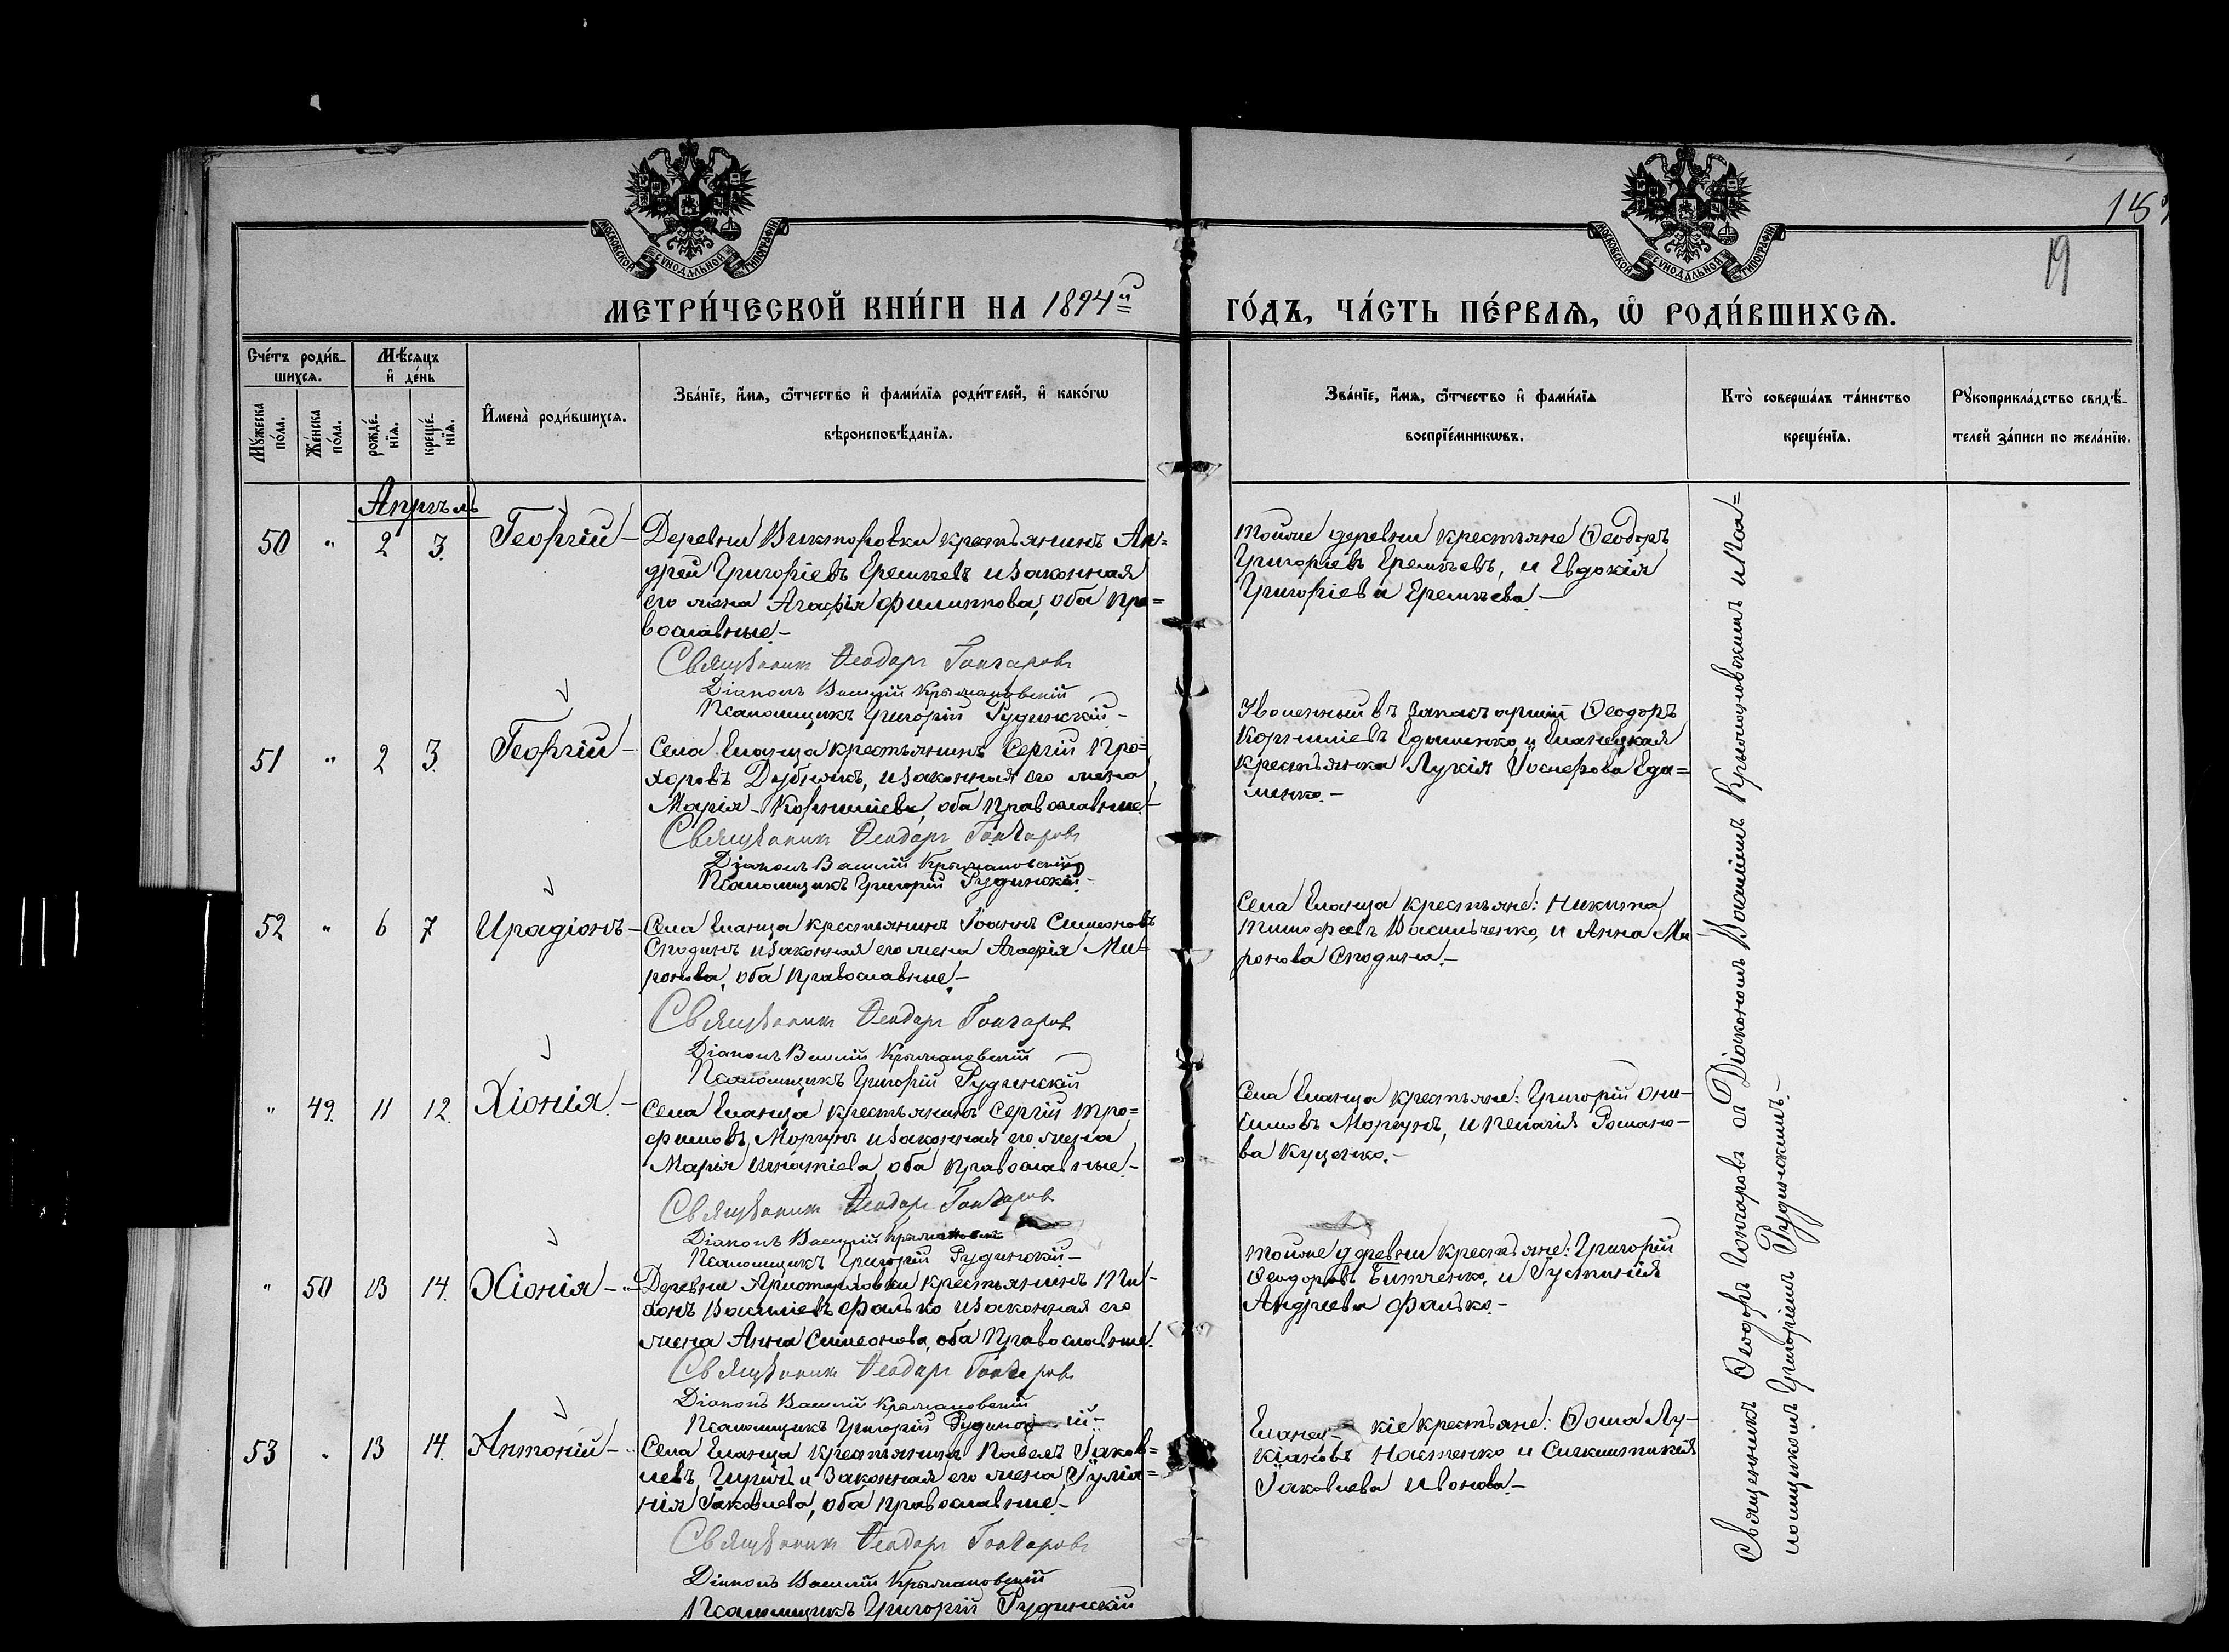 МОСКОВСКОЙ СѴНОДАЛЬНОЙ ТИПОГРАФІИ
МОСКОВСКОЙ СѴНОДАЛЬНОЙ ТИПОГРАФІИ
19
МЕТРИ́ЧЕСКОЙ КНИ́ГИ НА 1894й
ГО́ДЪ, ЧА́СТЬ ПЕ́РВАѦ, Ѡ҆ РОДИ́ВШИХСѦ.
Сче́тъ роди́в-
шихсѧ.
Мꙋ́жеска по́ла.
Же́нска по́ла.
Мѣ́сяцъ
и҆ де́нь
рожде́-
нїѧ.
креще́-
нїѧ.
И҆мена̀ роди́вшихсѧ.
Зва́нїе, и҆́мѧ, ѻ҆́тчество и҆ фами́лїѧ роди́телей, и҆ како́гѡ
вѣроисповѣ́данїѧ.
Зва́нїе, и҆́мѧ, ѻ҆́тчество и҆ фами́лїѧ
воспрїе́мникѡвъ.
Кто̀ соверша́лъ та́инство
креще́нїѧ.
Рꙋкоприкла́дство свидѣ́-
телей за́писи по жела́нїю.
Апрѣль
50 " 2 3. Георгій - Деревни Викторовки крестьянинъ Ан=
дрей Григоріевъ Еремѣевъ и законная
его жена Агафія Филиппова, оба пра=
вославные. -
Священник Ѳеодоръ Гончаровъ
Діаконъ Василій Крыжановскій
Псаломщикъ Григорій Рудинскій -
тойже деревни крестьяне Ѳеодоръ
Григорьевъ Еремѣевъ, и Евдокія
Григоріева Еремѣева. -
51 " 2 3. Георгій - Села Еланца крестьянинъ Сергій Про=
хоровъ Дубнякъ, и законная его жена
Марія Корниліева, оба православные. -
Священник Ѳеодоръ Гончаровъ
Діаконъ Василій Крыжановскій
Псаломщикъ Григорій Рудинскій. -
Уволенный въ запасъ арміи Ѳеодоръ
Корниліевъ и Еланецкая
крестьянка Лукія Іосифова Еда=
менко. -
52 " 6 7 Иродіонъ - Села Еланца крестьянинъ Іоаннъ Симеоновъ
Сподинъ и законная его жена Агафія Ми-
ронова, оба православные. -
Священник Ѳеодоръ Гончаровъ
Діаконъ Василій Крыжановскій
Псаломщикъ Григорій Рудинскій
Села Еланца крестьяне: Никита
Тимофеевъ Васильченко, и Анна Ми-
ронова Сподина. -
" 49. 11 12. Хіонія. - Села Еланца крестьянинъ Сергій Тро=
фимовъ Моргунъ и законная его жена
Марія Игнатіева, оба православные. -
Священник Ѳеодоръ Гончаровъ
Діаконъ Василій Крыжановскій
Псаломщикъ Григорій Рудинскій -
Села Еланца крестьяне: Григорій Они-
симовъ Моргунъ, и Пелагія Романо-
ва Куценко. -
" 50 13 14. Хіонія - Деревни крестьянинъ Ти-
хонъ Василіевъ Фалько и законная его
жена Анна Симеонова, оба православные.
Священник Ѳеодоръ Гончаровъ
Діаконъ Василій Крыжановскій
Псаломщикъ Григорій Рудинскій -
тойже деревни крестьяне: Григорій
Ѳеодоровъ и Іустинія
Андреева Фалько. -
53 " 13 14. Антоній - Села Еланца крестьянинъ Павелъ Іаков=
левъ и законная его жена Іуліа=
нія Іаковлева, оба православные. -
Священник Ѳеодоръ Гончаровъ
Діаконъ Василій Крыжановскій
Псаломщикъ Григорій Рудинскій
Еланец- кіе крестьяне: Ѳома Лу-
кіановъ Настенко и
Іаковлева Ивонова. -
Священникъ Ѳеодоръ Гончаровъ съ Діакономъ Василіемъ Крыжановскимъ и Пса=
ломщикомъ Григоріемъ Рудинскимъ. -